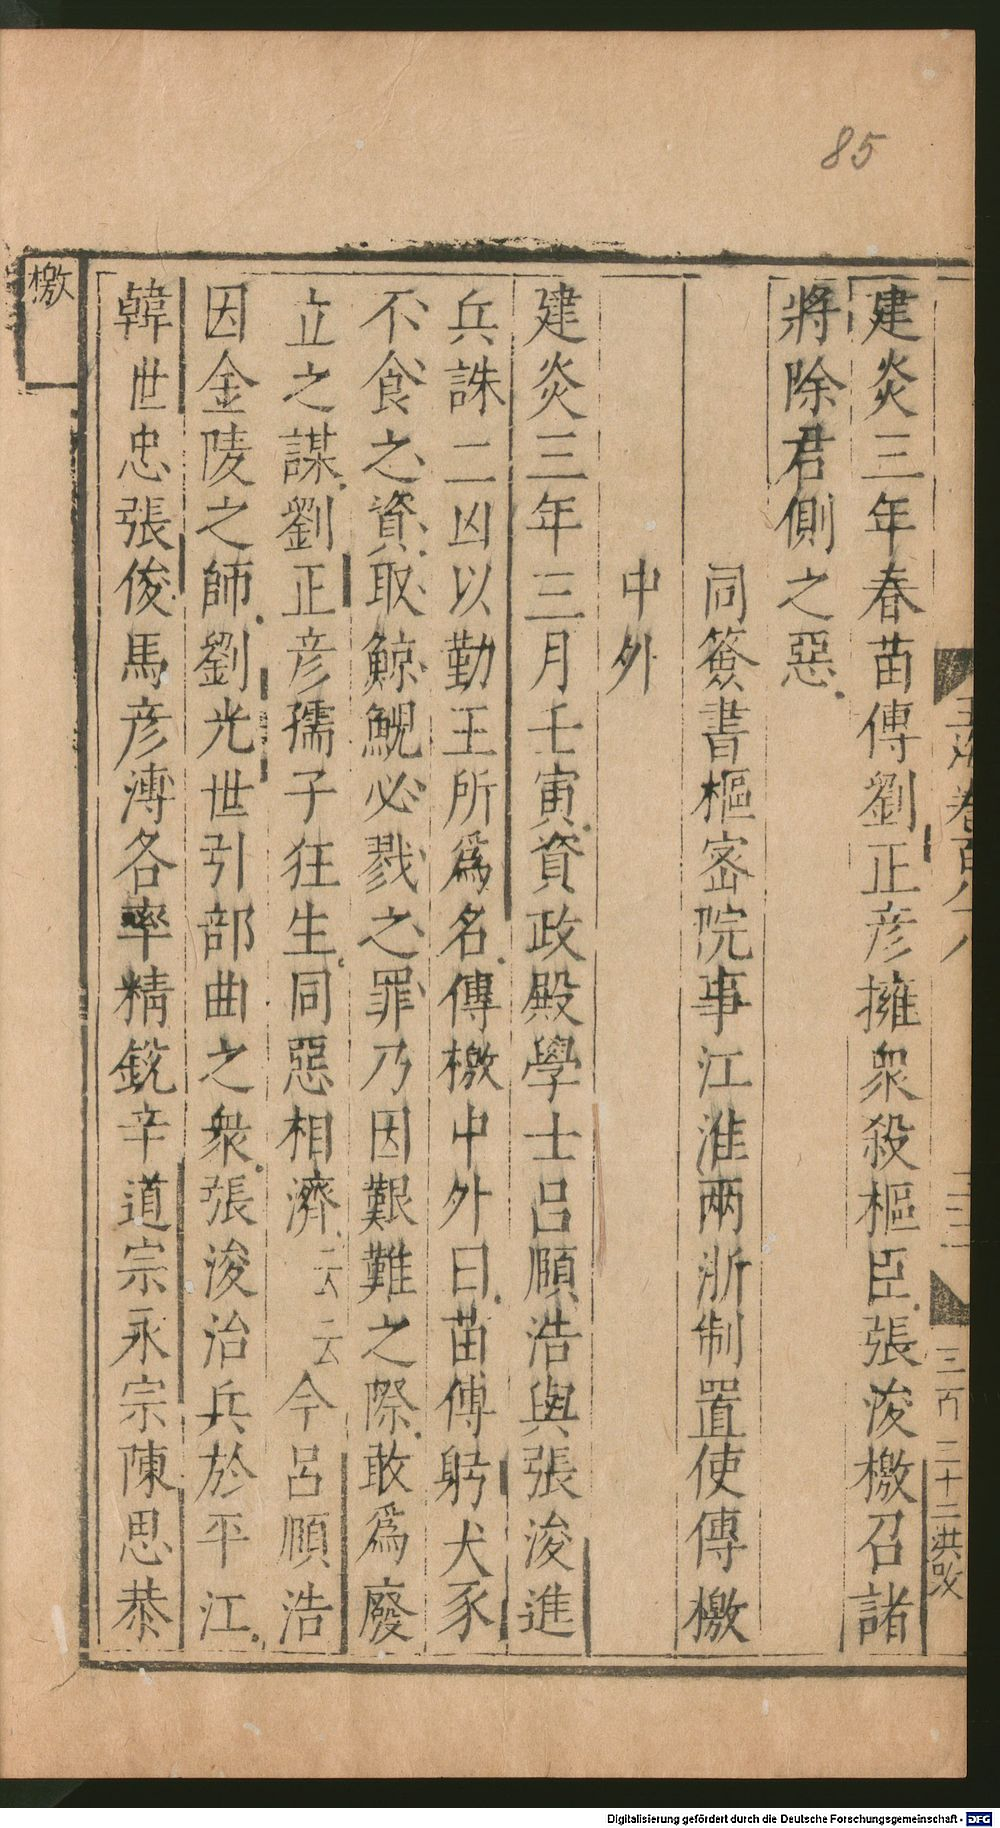 85
建炎三年春苗傅劉正彥擁衆殺樞臣張浚檄召諸
將除君側之惡
同簽書樞密院事江淮兩浙制置使傳檄
中外
建炎三年三月壬寅資政殿學士呂頤浩與張浚進
兵誅二凶以勤王所爲名傳檄中外曰苗傅躬犬豕
不食之資取鯨鯢必戮之罪乃因艱難之際敢爲廢
立之謀劉正彥孺子狂生同惡相濟云云今呂頤浩
因金陵之師劉光世引部曲之衆張浚治兵於平江
韓世忠張俊馬彥溥各率精銳辛道宗永宗陳思恭
檄
Digitalisierung gefördert durch die Deutsche Forschungsgemeinschaft - DFG